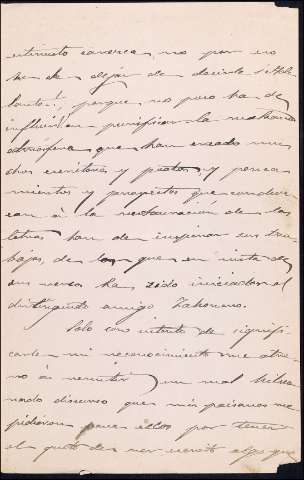 estímulo carezca, no por eso
he de dejar de decirle ¡adelante!
porque no poco ha de
influir en purificar la malsana
atmósfera que han creado muchos
escritores y poetas, y pensamientos
y proyectos que conduzcan
á la restauración de las
letras han de inspirar sus trabajos,
de los que en vista de
sus versos ha sido iniciador el
distinguido amigo Zahonero.
Solo con intento de significarle
mi reconocimiento me atrevo
á remitir un mal hilvanado
discurso que mis paisanos me
pidieron para ellos por tener
el gusto de ver escrito algo que